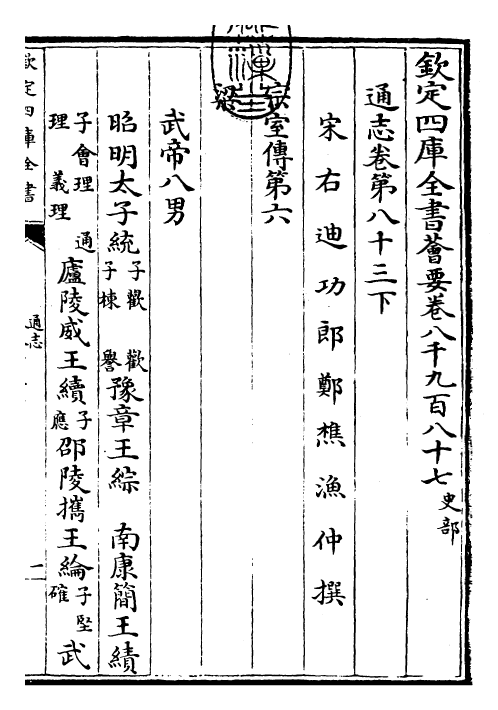 欽定四庫全書薈要卷八千九百八十七 史部
通志卷第八十三下
宋右迪功郎鄭樵漁仲撰
宗室傳第六
梁
武帝八男
昭明太子統 子歡 歡子棟 譽 豫章王綜 南康簡王績
子會理 通理 義理 廬陵威王續 子應 邵陵攜王綸 子堅 確 武
欽定四庫全書
通志
二